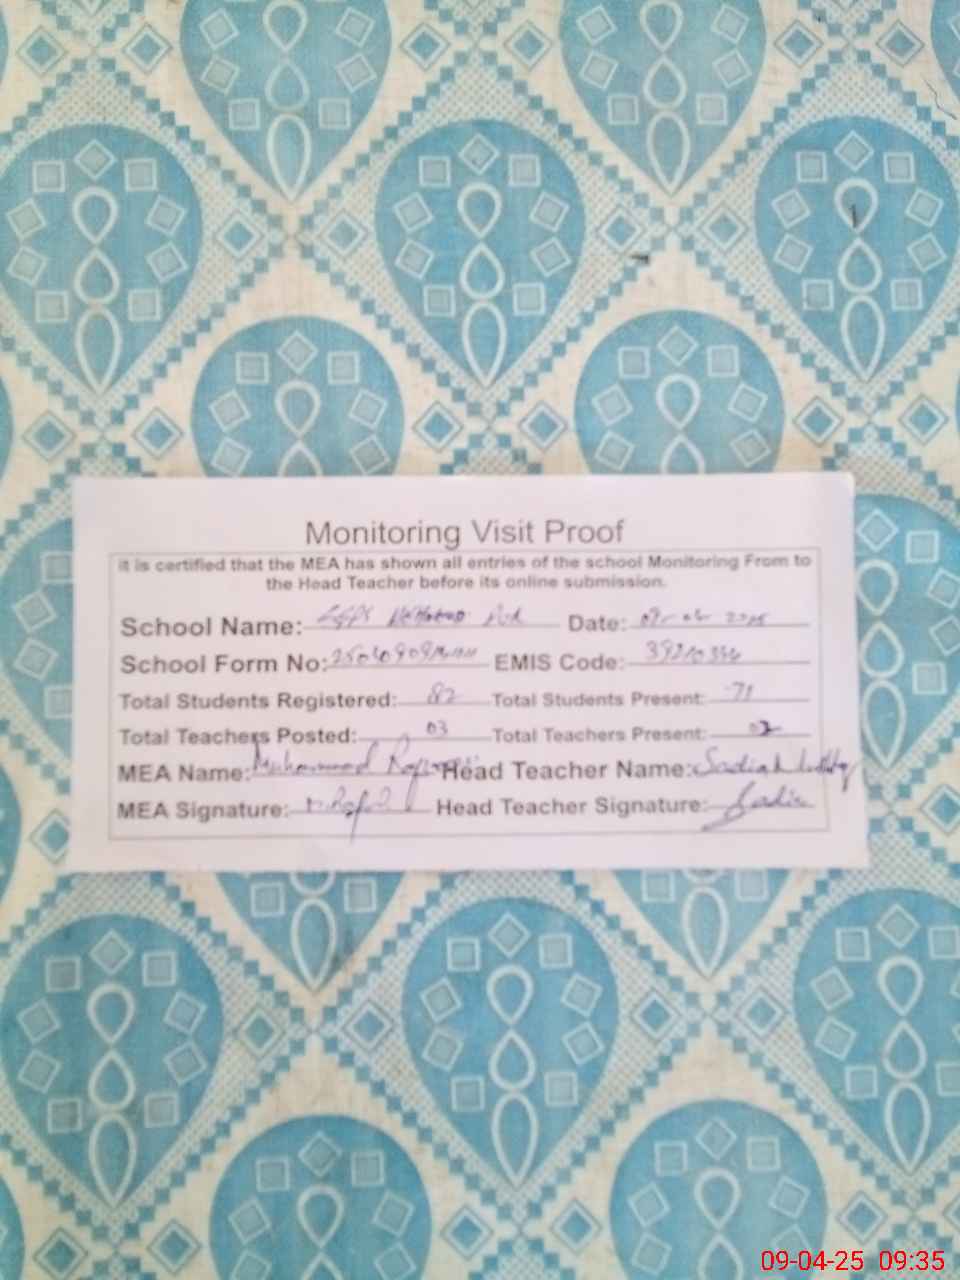 Monitoring Visit Proof
it is certified that the MEA has shown all entries of the school Monitoring From to
the Head Teacher before its online submission.
School Name: Date: 09-04-2025
School Form No: EMIS Code:
Total Students Registered: 82 Total Students Present: 71
Total Teachers Posted: 03 Total Teachers Present:
MEA Name: Muhammad Head Teacher Name: Sadiah
MEA Signature: Head Teacher Signature: Sadia
09-04-25 09:35